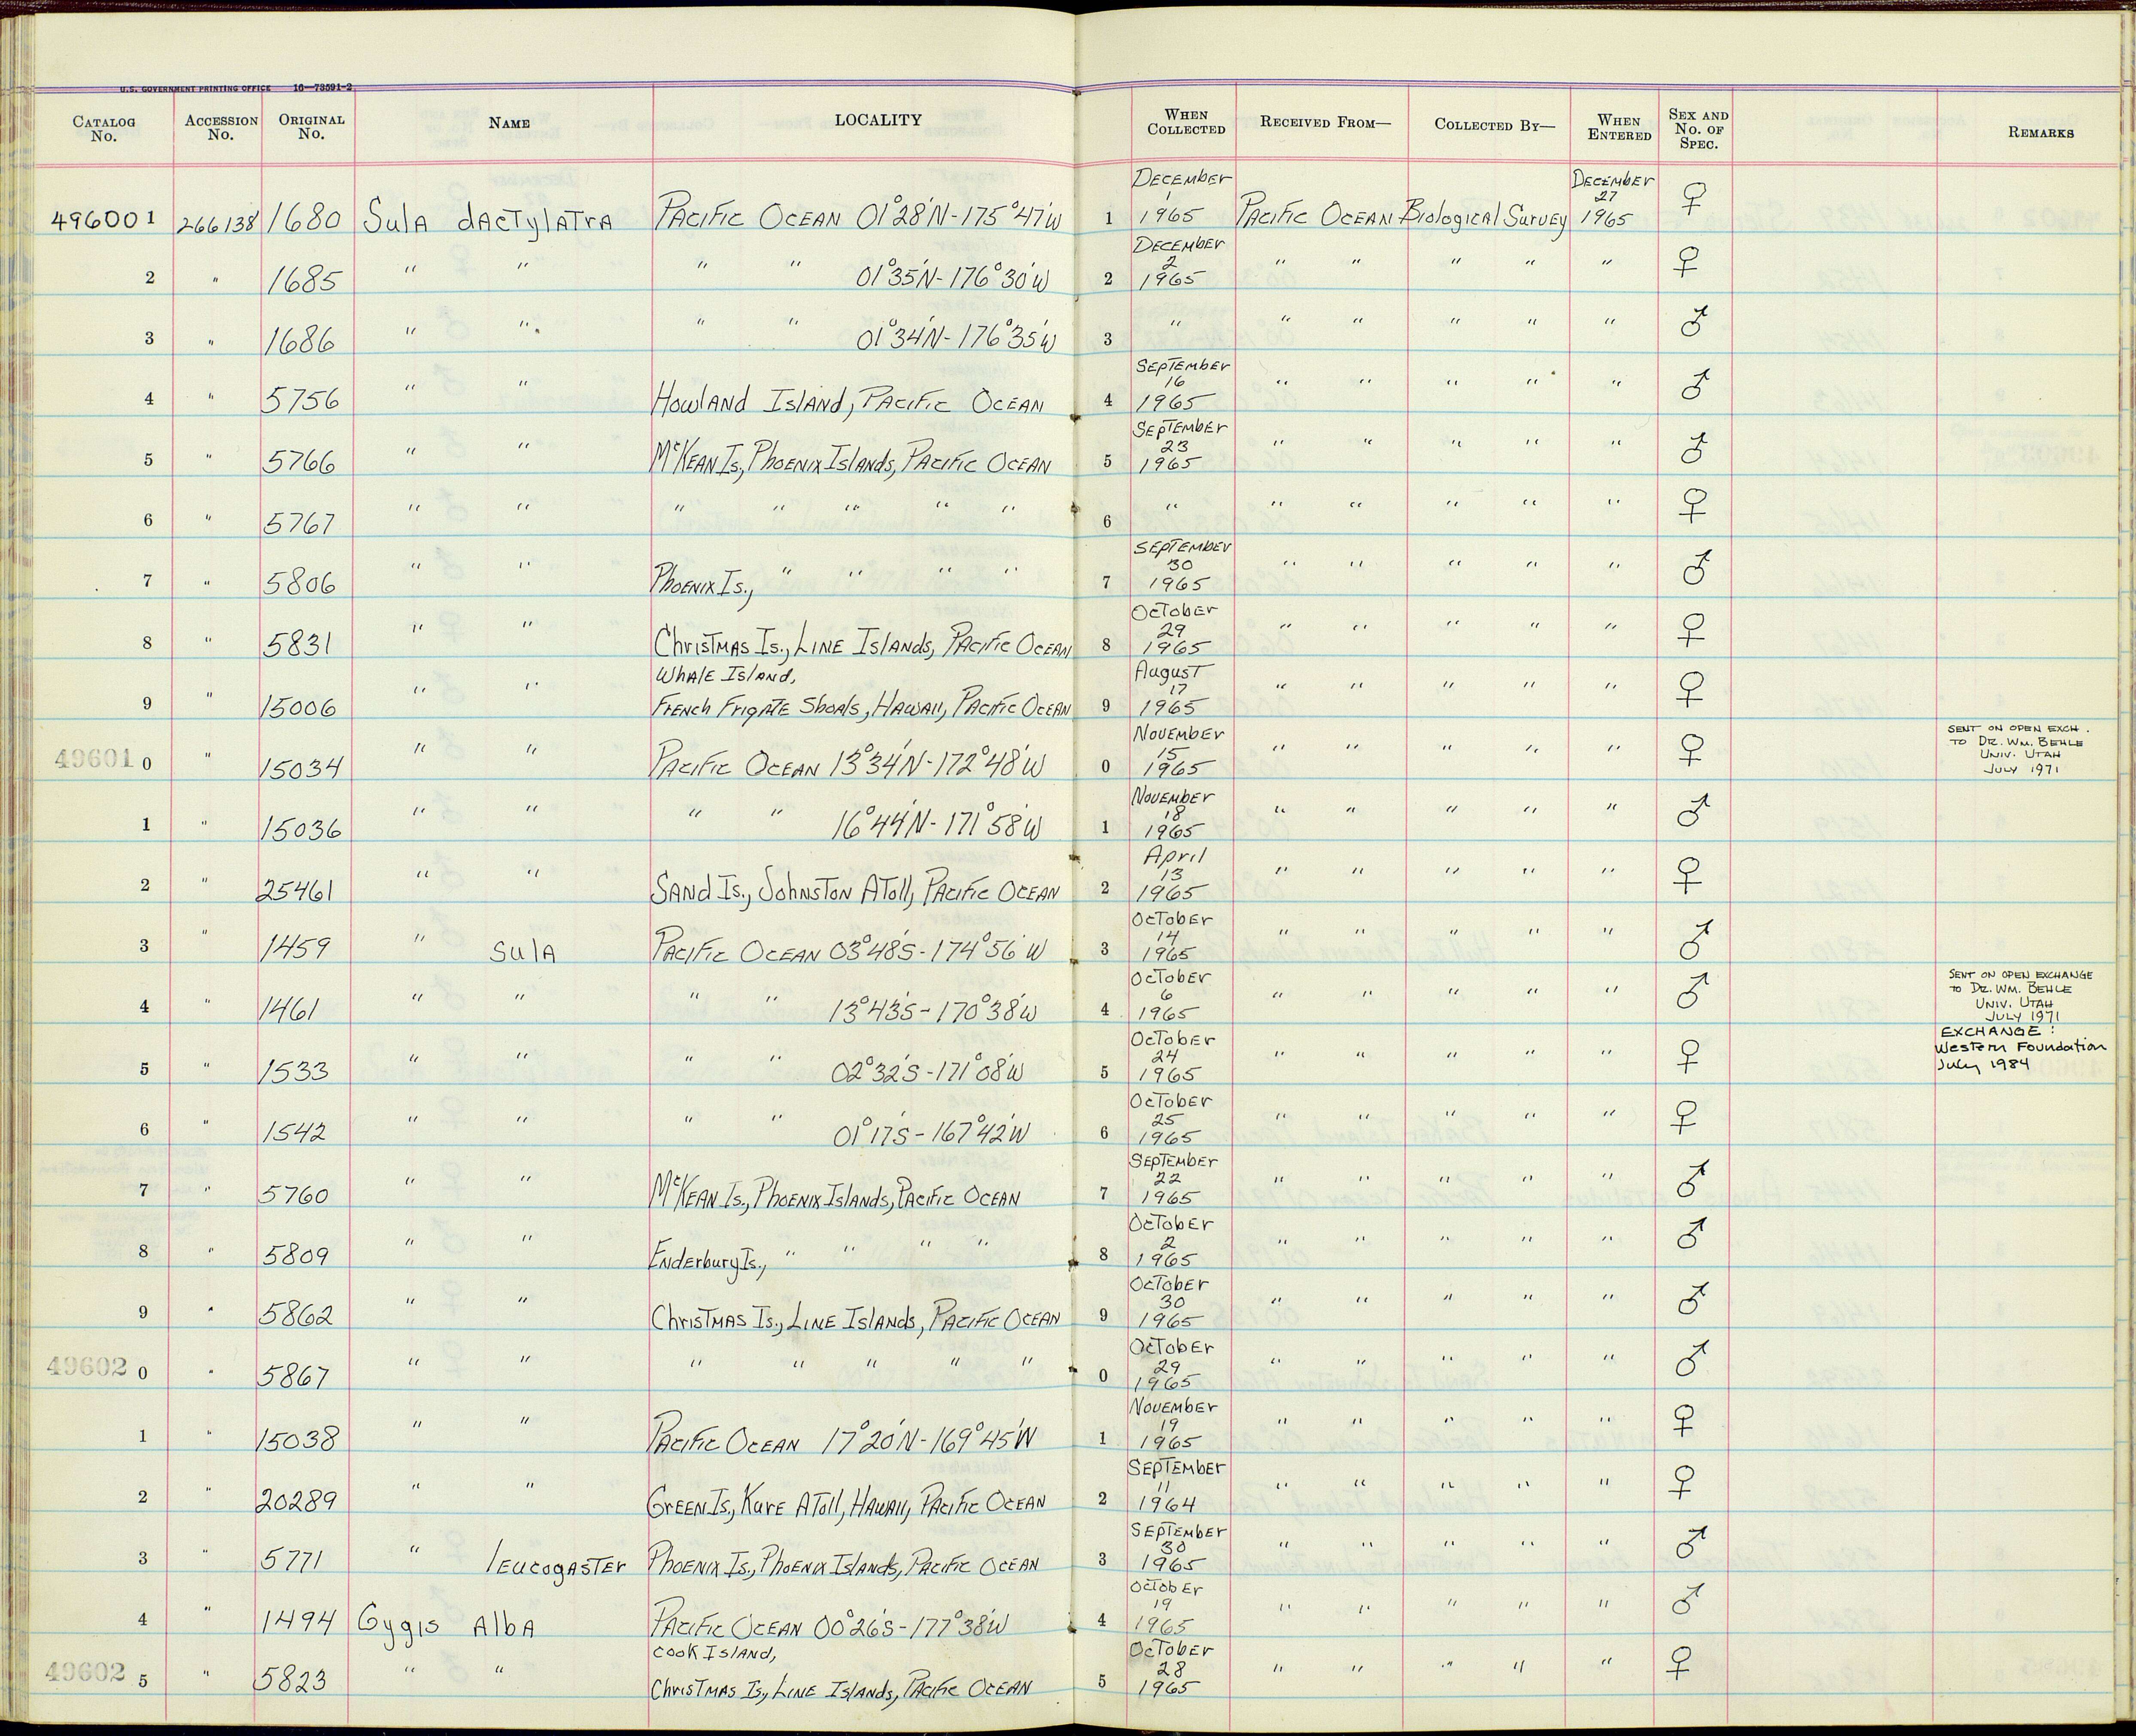 U.S. GOVERNMENT PRINTING OFFICE 16—73591-2
CATALOG No. ACCESSION No. ORIGINAL No. NAME LOCALITY WHEN COLLECTED RECEIVED FROM— COLLECTED BY— WHEN ENTERED SEX AND No. OF SPEC. REMARKS
496001 266138 1680 Sula dactylatra Pacific Ocean 01°28'N-175°47'W 1 December 1 1965 Pacific Ocean Biological Survey December 27 1965 ♀
2 " 1685 " " " " 01°35'N-176°30'W 2 December 2 1965 " " " " " ♀
3 " 1686 " " " " 01°34'N-176°35'W 3 " " " " " " ♂
4 " 5756 " " Howland Island, Pacific Ocean 4 September 16 1965 " " " " " ♂
5 " 5766 " " McKean Is., Phoenix Islands, Pacific Ocean 5 September 23 1965 " " " " " ♂
6 " 5767 " " " " " " " 6 " " " " " " ♀
7 " 5806 " " Phoenix Is., " " " " 7 September 30 1965 " " " " " ♂
8 " 5831 " " Christmas Is., Line Islands, Pacific Ocean 8 October 29 1965 " " " " " ♀
9 " 15006 " " Whale Island, French Frigate Shoals, Hawaii, Pacific Ocean 9 August 17 1965 " " " " " ♀
496010 " 15034 " " Pacific Ocean 13°34'N-172°48'W 0 November 15 1965 " " " " " ♀ SENT ON OPEN EXCH. TO DR. WM. BEHLE UNIV. UTAH JULY 1971
1 " 15036 " " " " 16°44'N-171°58'W 1 November 18 1965 " " " " " ♂
2 " 25461 " " Sand Is., Johnston Atoll, Pacific Ocean 2 April 13 1965 " " " " " ♀
3 " 1459 " Sula Pacific Ocean 03°48'S-174°56'W 3 October 14 1965 " " " " " ♂
4 " 1461 " " " " 13°43'S-170°38'W 4 October 6 1965 " " " " " ♂ SENT ON OPEN EXCHANGE TO DR. WM. BEHLE UNIV. UTAH JULY 1971
5 " 1533 " " " " 02°32'S-171°08'W 5 October 24 1965 " " " " " ♀ EXCHANGE: Western Foundation July 1984
6 " 1542 " " " " 01°17'S-167°42'W 6 October 25 1965 " " " " " ♀
7 " 5760 " " McKean Is., Phoenix Islands, Pacific Ocean 7 September 22 1965 " " " " " ♂
8 " 5809 " " Enderbury Is., " " " " 8 October 2 1965 " " " " " ♂
9 " 5862 " " Christmas Is., Line Islands, Pacific Ocean 9 October 30 1965 " " " " " ♂
496020 " 5867 " " " " " " " 0 October 29 1965 " " " " " ♂
1 " 15038 " " Pacific Ocean 17°20'N-169°45'W 1 November 19 1965 " " " " " ♀
2 " 20289 " " Green Is., Kure Atoll, Hawaii, Pacific Ocean 2 September 11 1964 " " " " " ♀
3 " 5771 " leucogaster Phoenix Is., Phoenix Islands, Pacific Ocean 3 September 30 1965 " " " " " ♂
4 " 1494 Gygis Alba Pacific Ocean 00°26'S-177°38'W 4 October 19 1965 " " " " " ♂
496025 " 5823 " " Cook Island, Christmas Is., Line Islands, Pacific Ocean 5 October 28 1965 " " " " " ♀